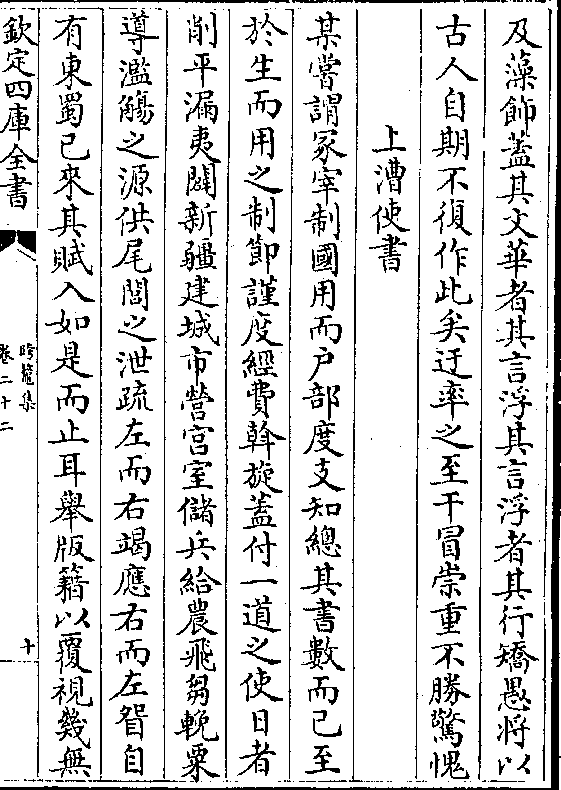 及藻飾蓋其文華者其言浮其言浮者其行矯愚將以
古人自期不復作此矣迂率之至干冒崇重不勝驚愧
上漕使書
某嘗謂冢宰制國用而户部度支知總其書數而已至
於生而用之制節謹度經費斡旋蓋付一道之使日者
削平漏夷闢新疆建城市營宫室儲兵給農飛芻輓粟
導濫觴之源供尾閭之泄疏左而右竭應右而左眢自
有東蜀已來其賦入如是而止耳舉版籍以覆視幾無
欽定四庫全書
跨鼇集
卷二十二
十